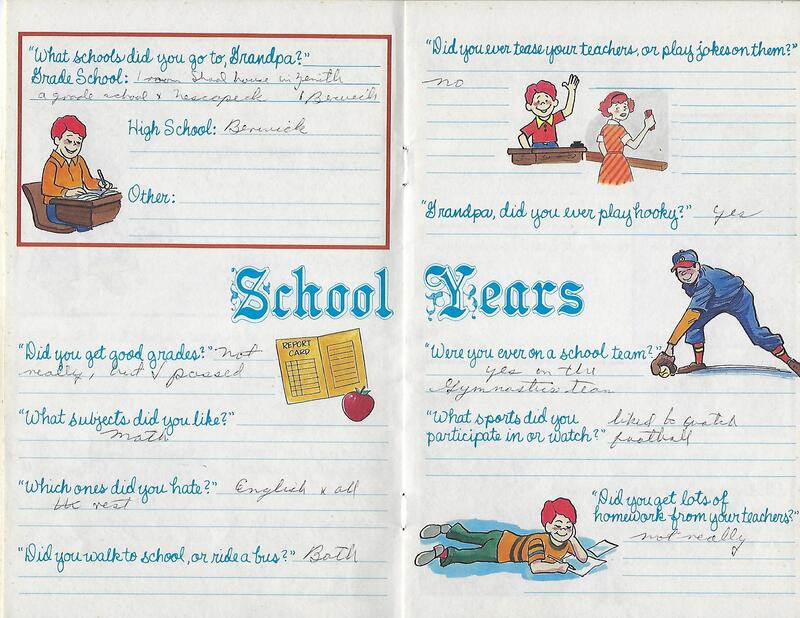 "What schools did you go to, Grandpa?"
Grade School: 1 room school house in Zenith
a grade school & Nescopeck & Berwick
High School: Berwick
Other:
School Years
"Did you get good grades?" not
really, but I passed
REPORT
CARD
"What subjects did you like?"
Math
"Which ones did you hate?" English & all
the rest
"Did you walk to school, or ride a bus?" Both
"Did you ever tease your teachers, or play jokes on them?"
no
"Grandpa, did you ever play hooky?" yes
"Were you ever on a school team?"
yes on the
Gymnastics team
"What sports did you liked to watch
participate in or watch?" football
"Did you get lots of
homework from your teachers?"
not really